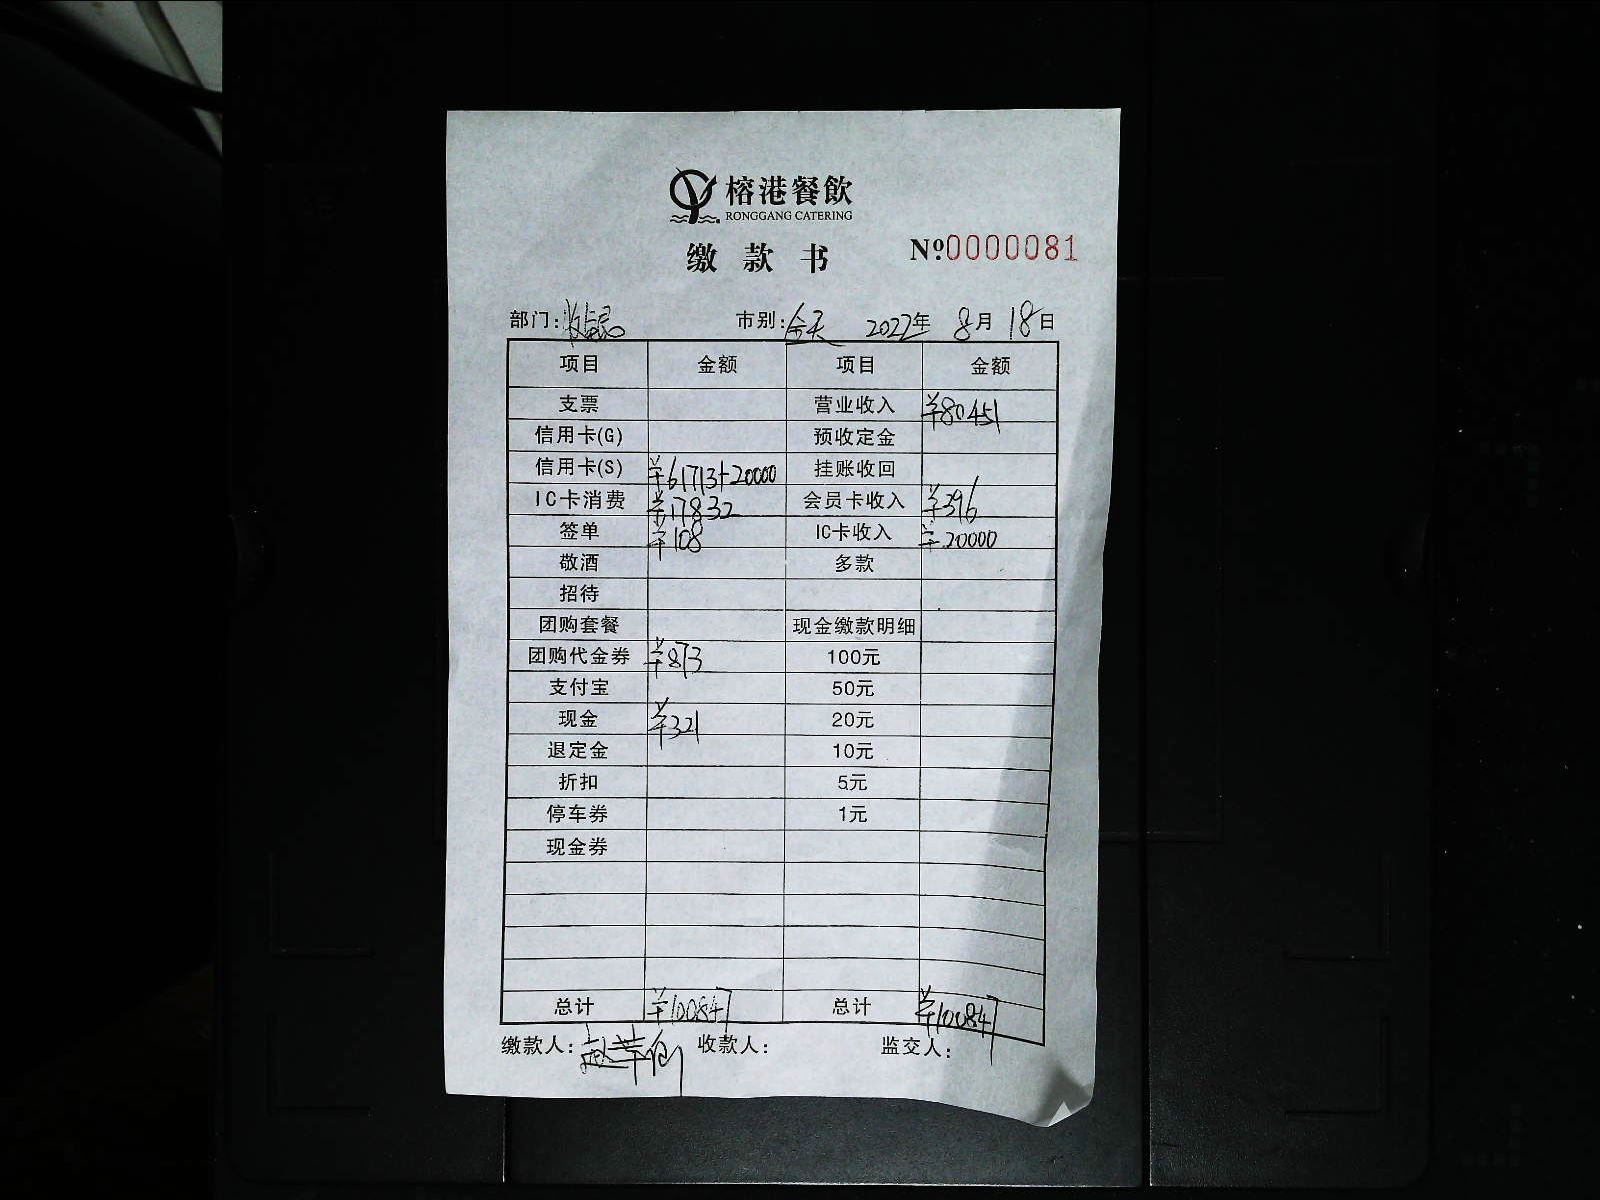 榕港餐飲
RONGGANG CATERING
缴款书 Nº.0000081
部门:收银 市别:全天 2022年 8月 18日
项目 金额 项目 金额
支票 营业收入 ¥80451
信用卡(G) 预收定金
信用卡(S) ¥61713+20000 挂账收回
IC卡消费 ¥17832 会员卡收入 ¥396
签单 ¥108 IC卡收入 ¥20000
敬酒 多款
招待
团购套餐 现金缴款明细
团购代金券 ¥873 100元
支付宝 50元
现金 ¥321 20元
退定金 10元
折扣 5元
停车券 1元
现金券
总计 ¥100847 总计 ¥100847
缴款人: 收款人: 监交人: